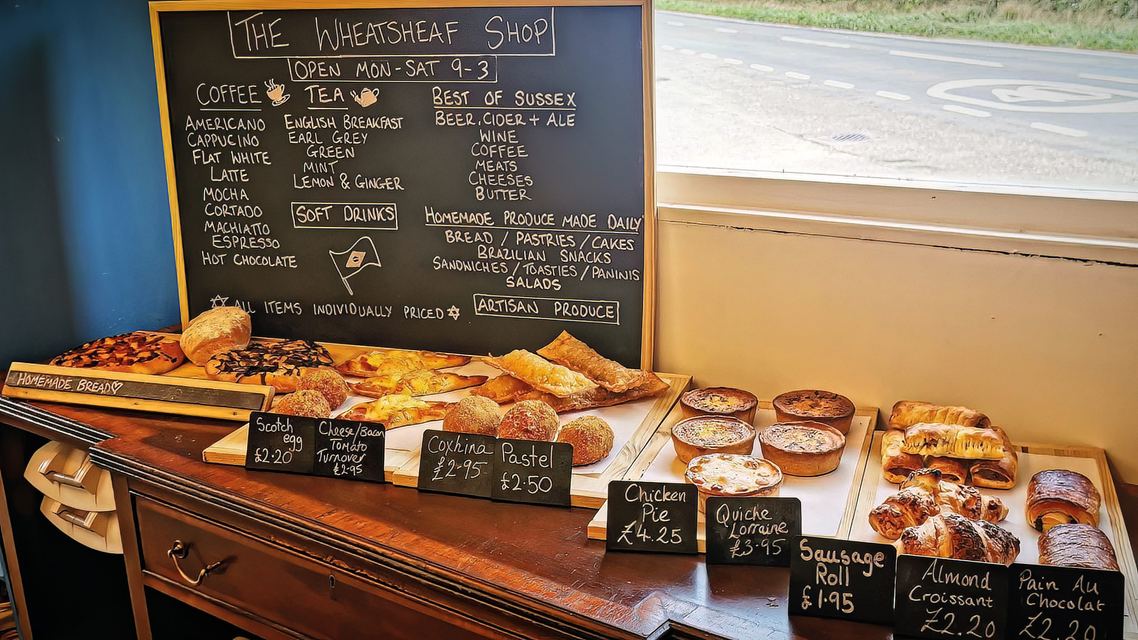 THE WHEATSHEAF SHOP
OPEN MON-SAT 9-3
COFFEE
AMERICANO
CAPPUCINO
FLAT WHITE
LATTE
MOCHA
CORTADO
MACHIATTO
ESPRESSO
HOT CHOCOLATE
TEA
ENGLISH BREAKFAST
EARL GREY
GREEN
MINT
LEMON & GINGER
SOFT DRINKS
BEST OF SUSSEX
BEER, CIDER + ALE
WINE
COFFEE
MEATS
CHEESES
BUTTER
HOMEMADE PRODUCE MADE DAILY
BREAD / PASTRIES / CAKES
BRAZILIAN SNACKS
SANDWICHES / TOASTIES / PANINIS
SALADS
ARTISAN PRODUCE
ALL ITEMS INDIVIDUALLY PRICED
HOMEMADE BREAD
Scotch
egg
£2.20
Cheese/Bacon
Tomato
Turnover
£2.95
Coxhina
£2.95
Pastel
£2.50
Chicken
Pie
£4.25
Quiche
Lorraine
£3.95
Sausage
Roll
£1.95
Almond
Croissant
£2.20
Pain Au
Chocolat
£2.20